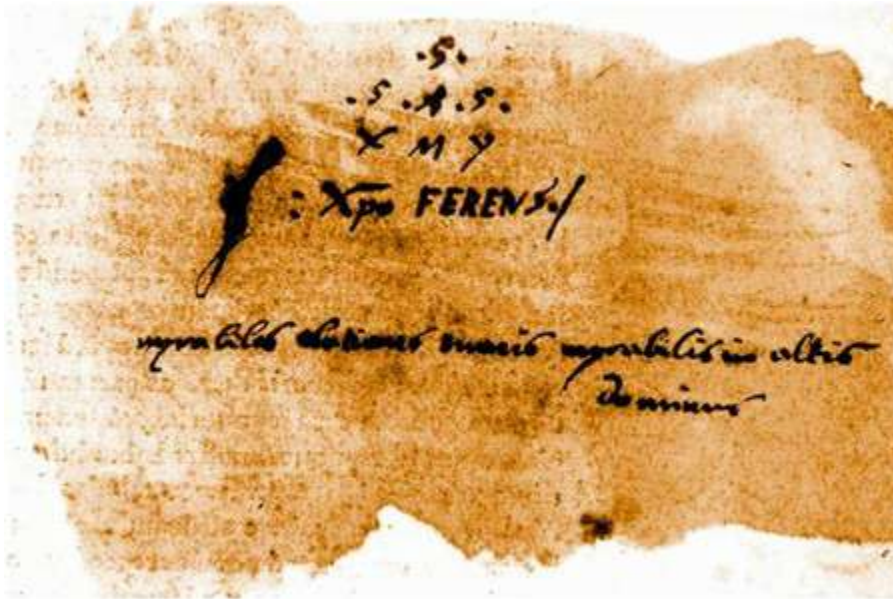 .S.
.S.A.S.
X M Y
: Xpo FERENS./
myrabiles elationes maris myrabilis in altis
Dominus